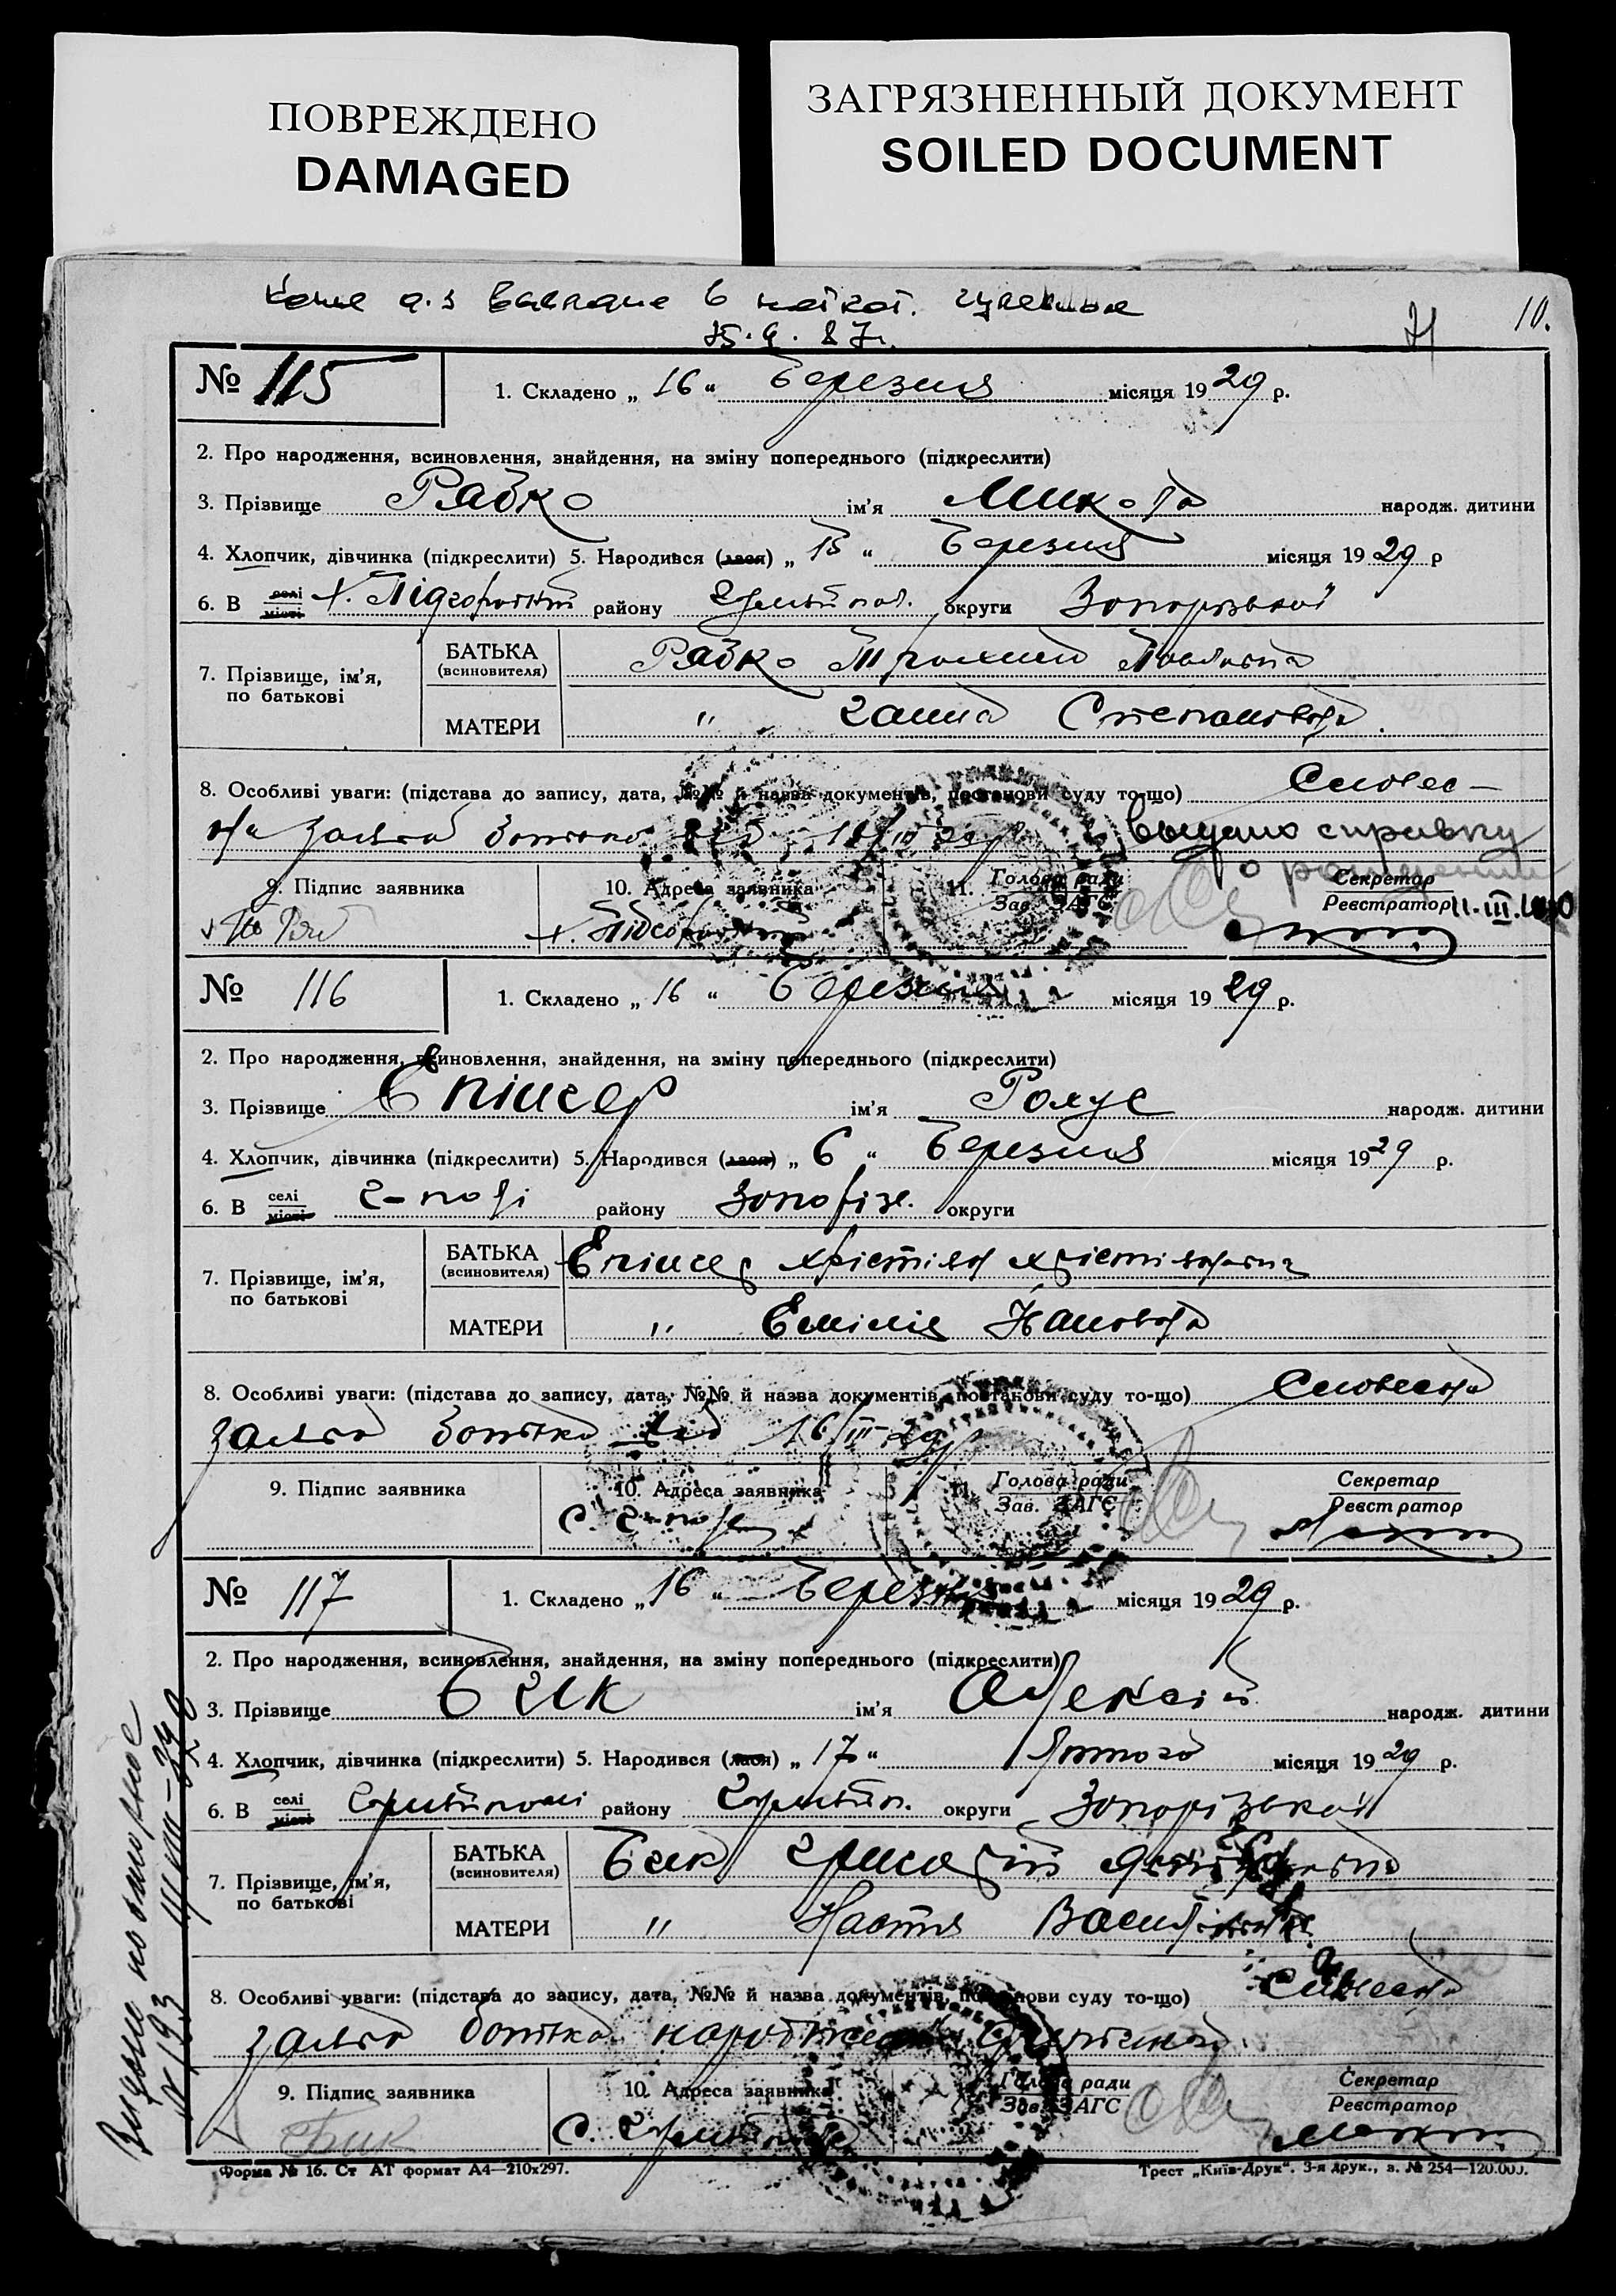 ПОВРЕЖДЕНО
DAMAGED
ЗАГРЯЗНЕННЫЙ ДОКУМЕНТ
SOILED DOCUMENT
10.
№ 115
1. Складено „ 16 “ Березня місяця 19 29 р.
2. Про народження, всиновлення, знайдення, на зміну попереднього (підкреслити)
3. Прізвище Рябко ім'я Микола народж. дитини
4. Хлопчик, дівчинка (підкреслити) 5. Народився (лася) „ 15 “ Березня місяця 19 29 р
6. В селі місті х. Підгородній району округи Запорізької
7. Прізвище, ім'я, по батькові
БАТЬКА (всиновителя) Рябко Трохим Павлович
МАТЕРИ " Ганна Степановна.
8. Особливі уваги: (підстава до запису, дата, №№ й назва документів, постанови суду то-що) Словес-
на заява батька від 16/III 29 р. выдано справку
о рождении
9. Підпис заявника
10. Адреса заявника
11. Голова ради
Зав. ЗАГС
Секретар
Реєстратор 11.III.
х. Підгородній
№ 116
1. Складено „ 16 “ Березня місяця 19 29 р.
2. Про народження, всиновлення, знайдення, на зміну попереднього (підкреслити)
3. Прізвище Епінгер ім'я народж. дитини
4. Хлопчик, дівчинка (підкреслити) 5. Народився (лася) „ 6 “ Березня місяця 19 29 р.
6. В селі місті Г-полі району Запоріз. округи
7. Прізвище, ім'я, по батькові
БАТЬКА (всиновителя) Епінгер
МАТЕРИ " Емілія Івановна
8. Особливі уваги: (підстава до запису, дата, №№ й назва документів, постанови суду то-що) Словесна
заява батька від 16/III 29 р.
9. Підпис заявника
10. Адреса заявника
11. Голова ради
Зав. ЗАГС
Секретар
Реєстратор
с. Г-поле
№ 117
1. Складено „ 16 “ Березня місяця 19 29 р.
2. Про народження, всиновлення, знайдення, на зміну попереднього (підкреслити)
3. Прізвище Бик ім'я Олексій народж. дитини
4. Хлопчик, дівчинка (підкреслити) 5. Народився (лася) „ 17 “ Лютого місяця 19 29 р.
6. В селі місті Гуляйполі району Гуляйп. округи Запорізької
7. Прізвище, ім'я, по батькові
БАТЬКА (всиновителя) Бик
МАТЕРИ " Настя Василівна
8. Особливі уваги: (підстава до запису, дата, №№ й назва документів, постанови суду то-що) Словесна
заява батька
9. Підпис заявника
10. Адреса заявника
Голова ради
Зав. ЗАГС
Секретар
Реєстратор
Бик
с. Гуляйполе
Форма № 16. Ст АТ формат А4—210х297.
Трест „Київ-Друк“. 3-я друк., з. № 254—120.000.